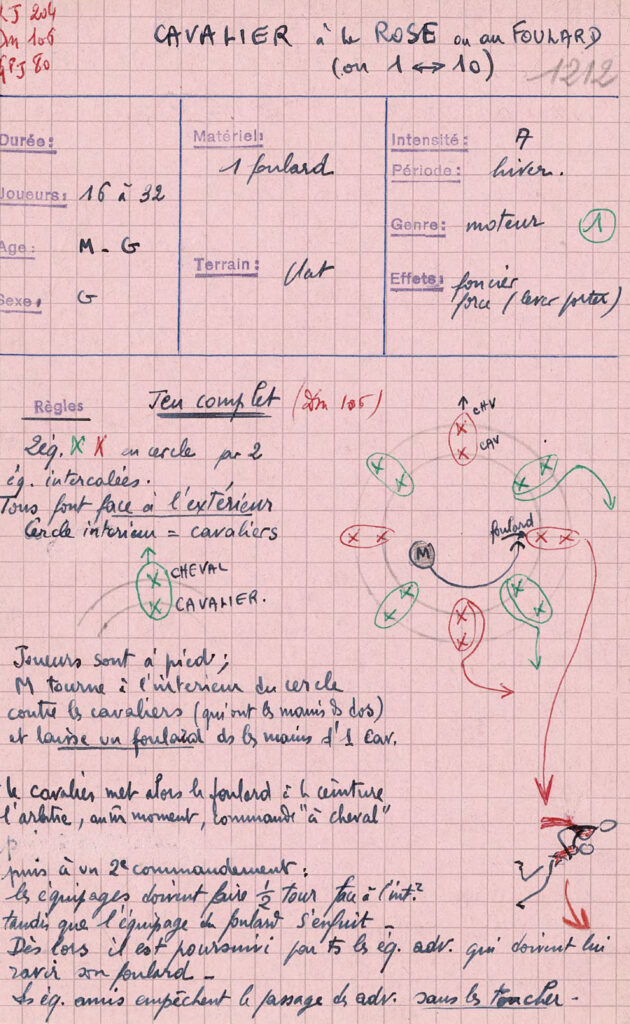 RJ 204
Dm 106
GPJ 80
CAVALIER à la ROSE ou au FOULARD
(ou 1 ↔ 10)
1212
Durée:
Joueurs: 16 à 32
Age: M - G
Sexe: G
Matériel:
1 foulard
Terrain: plat
Intensité: A
Période: hiver.
Genre: moteur 1
Effets: foncier
force (lever porter)
Règles
Jeu complet (Dm 105)
2 éq. X X en cercle par 2
éq. intercalées.
Tous font face à l'extérieur
Cercle interieur = cavaliers
CHEVAL
CAVALIER.
CHV
CAV
foulard
M
Joueurs sont à pied;
M tourne à l'interieur du cercle
contre les cavaliers (qui ont les mains ds dos)
et laisse un foulard ds les mains d'1 cav.
le cavalier met alors le foulard à la ceinture
l'arbitre, au m̂ moment, commande "à cheval"
puis à un 2e commandement:
les équipages doivent faire 1/2 tour face à l'int.
tandis que l'équipage du foulard s'enfuit -
Dès lors il est poursuivi par ts les éq. adv. qui doivent lui
ravir son foulard -
Les éq. amis empêchent le passage des adv. sans les toucher -